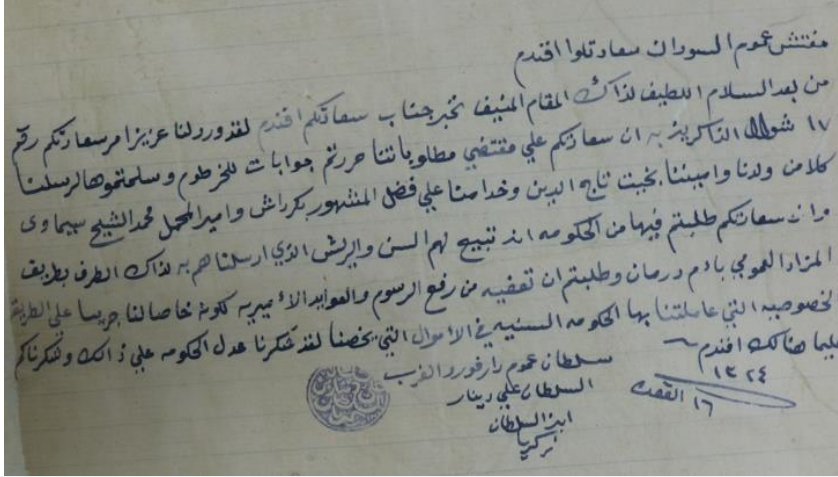 مفتش عموم السودان سعادتلوا افندم
من بعد السلام اللطيف لذاك المقام المنيف نخبر جناب سعادتكم افندم لقد ورد لنا عزيز امر سعادتكم رقم
١٧ شوال الذاكرين به ان سعادتكم علي مقتضي مطلوباتنا حررتم جوابات للخرطوم وسلمتموها لرسلنا
كلا من ولدنا واميننا بخيت تاج الدين وخدامنا علي فضل المشهور بكرداش وامير المحمل محمد الشيخ سيماوى
وان سعادتكم طلبتم فيها من الحكومه ان تبيح لهم السن والريش الذي ارسلناهم به لذاك الطرف بطريق
المزاد العمومي بام درمان وطلبتم ان تعفيه من رفع الرسوم والعوايد الأميريه كونه خاصا لنا جريا على الطريقة
الخصوصيه التي عاملتنا بها الحكومه السنيه في الاموال التي تخصنا لقد شكرنا عدل الحكومه علي ذالك ونشكركم
عليما هنالك افندم
سلطان عموم دارفور والغرب
السلطان علي دينار
ابن السلطان
زكريا
١٦ القعدة ١٣٢٤